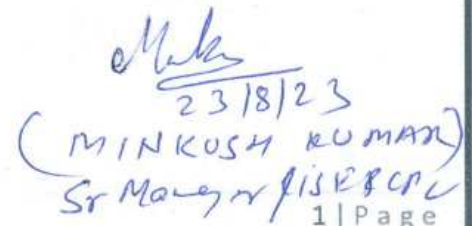 23/8/23
(MINKUSH KUMAR)
Sr Manager
1 | P a g e